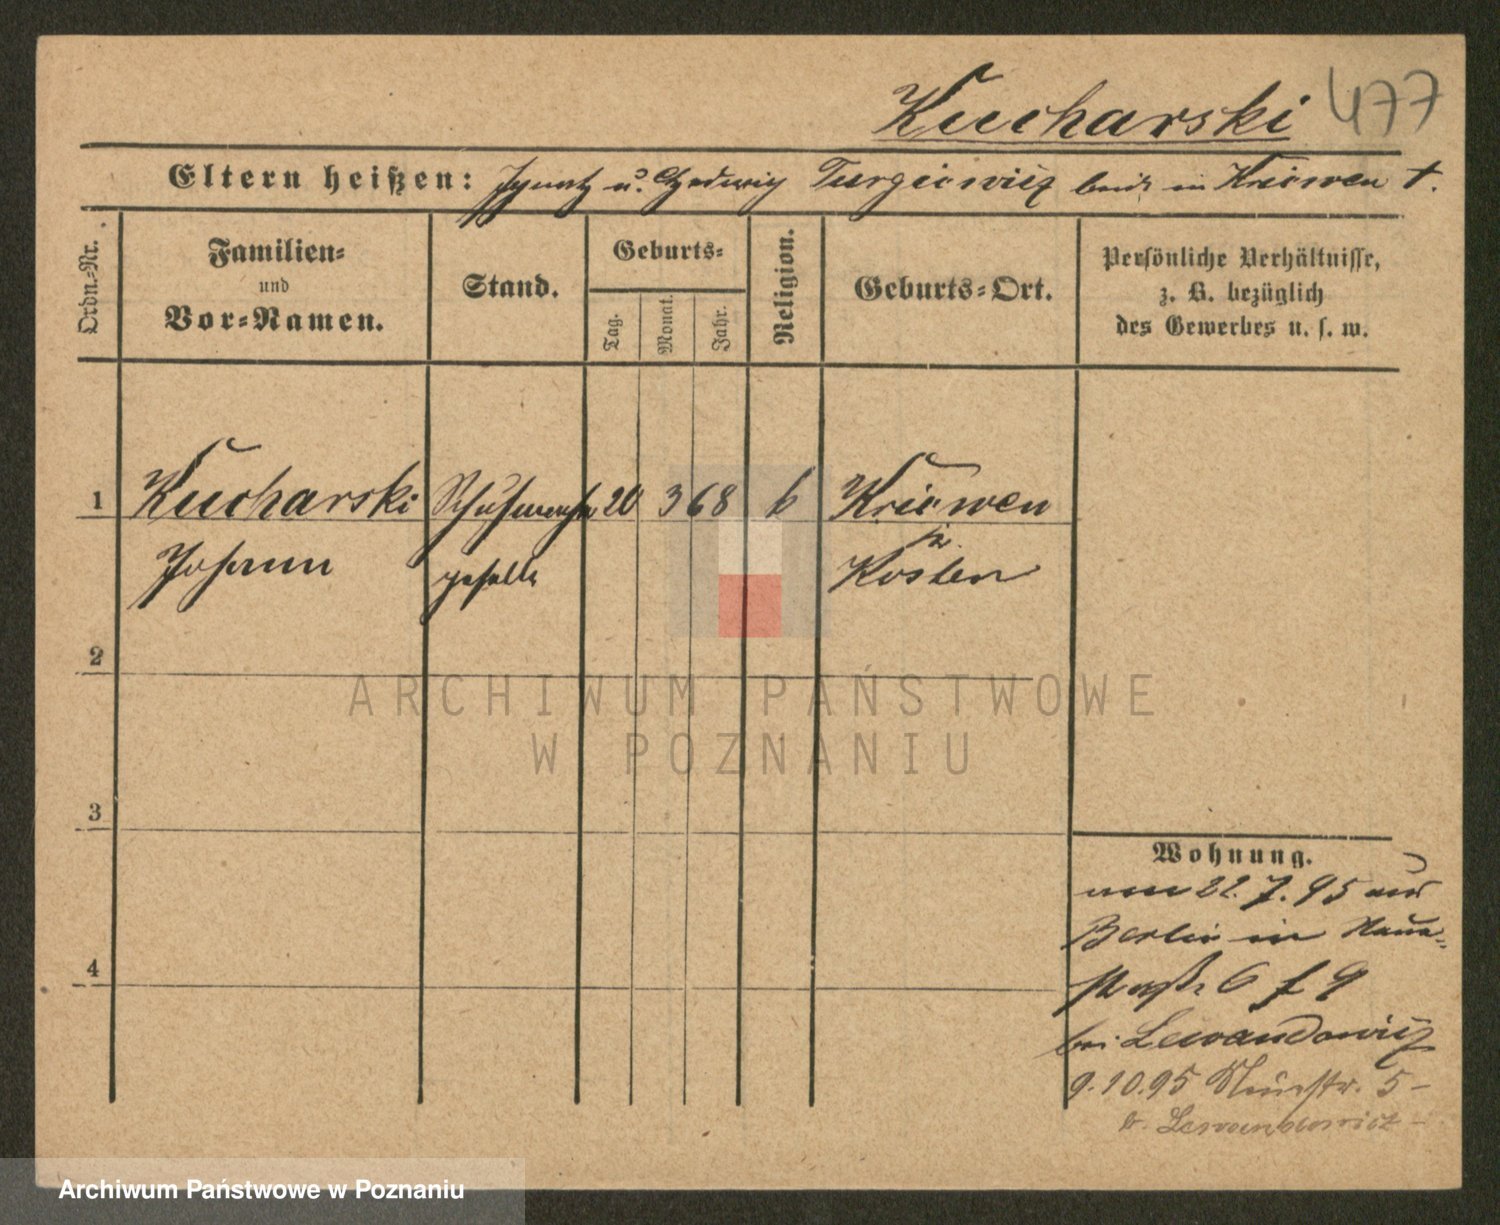 Kucharski 477
Eltern heißen: Ignatz u. Hedwig Turgiewicz beide in Kriewen †.
Ordn.-Nr.
Familien-
und
Vor-Namen.
Stand.
Geburts-
Tag.
Monat.
Jahr.
Religion.
Geburts-Ort.
Persönliche Verhältnisse,
z. B. bezüglich
des Gewerbes u. s. w.
1 Kucharski Schuhmacher 20 3 68 k Kriewen
Johann geselle Kosten
2
3
4
ARCHIWUM PAŃSTWOWE
W POZNANIU
Wohnung.
22.7.95 aus
Berlin in
straße 6
bei Lewandowicz
9.10.95 5 -
b. Lewandowicz -
Archiwum Państwowe w Poznaniu